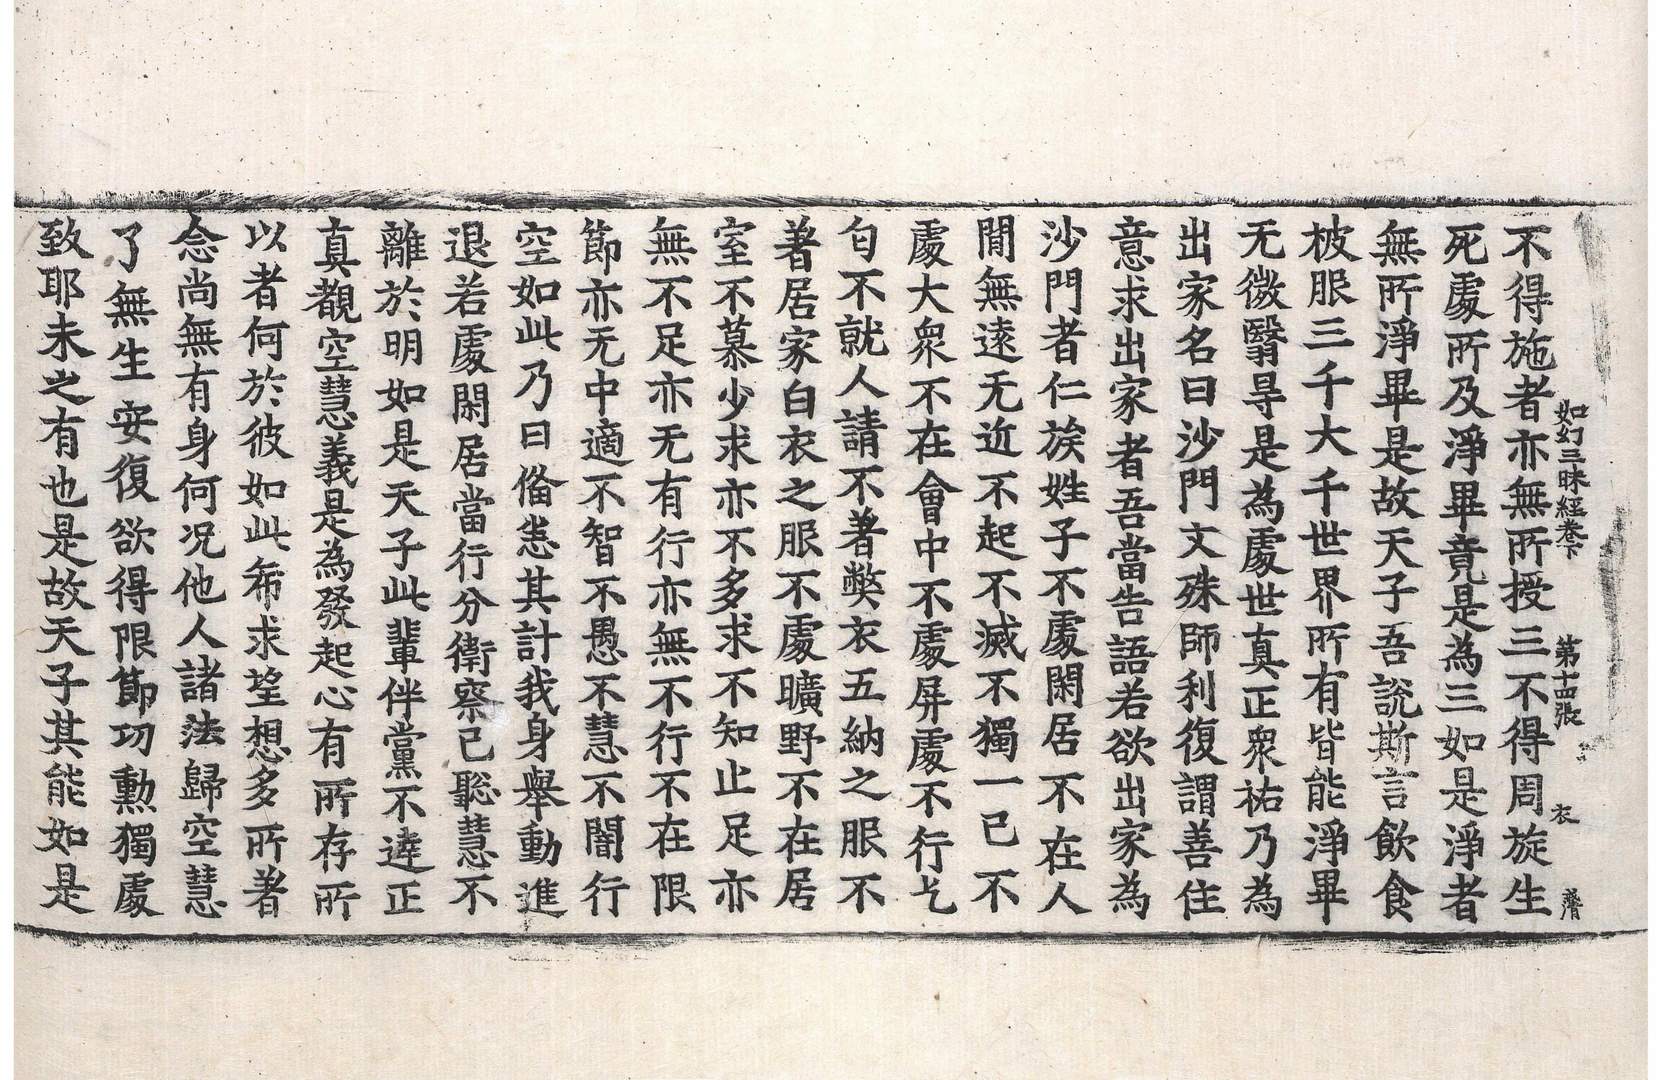 如幻三昧經卷下 第十四張 衣
不得施者亦無所授三不得周旋生
死處所及淨畢竟是為三如是淨者
無所淨畢是故天子吾說斯言飲食
被服三千大千世界所有皆能淨畢
无微翳㝵是為處世真正衆祐乃為
出家名曰沙門文殊師利復謂善住
意求出家者吾當告語若欲出家為
沙門者仁族姓子不處閑居不在人
閒無遠无近不起不滅不獨一已不
處大衆不在會中不處屏處不行乞
匂不就人請不著弊衣五納之服不
著居家白衣之服不處曠野不在居
室不慕少求亦不多求不知止足亦
無不足亦无有行亦無不行不在限
節亦无中適不智不愚不慧不闇行
空如此乃曰俻恙其計我身舉動進
退若處閑居當行分衛察己聡慧不
離於明如是天子此輩伴黨不逹正
真覩空慧義是為發起心有所存所
以者何於彼如此希求望想多所著
念尚無有身何况他人諸法歸空慧
了無生安復欲得限節功勳獨處
致耶未之有也是故天子其能如是